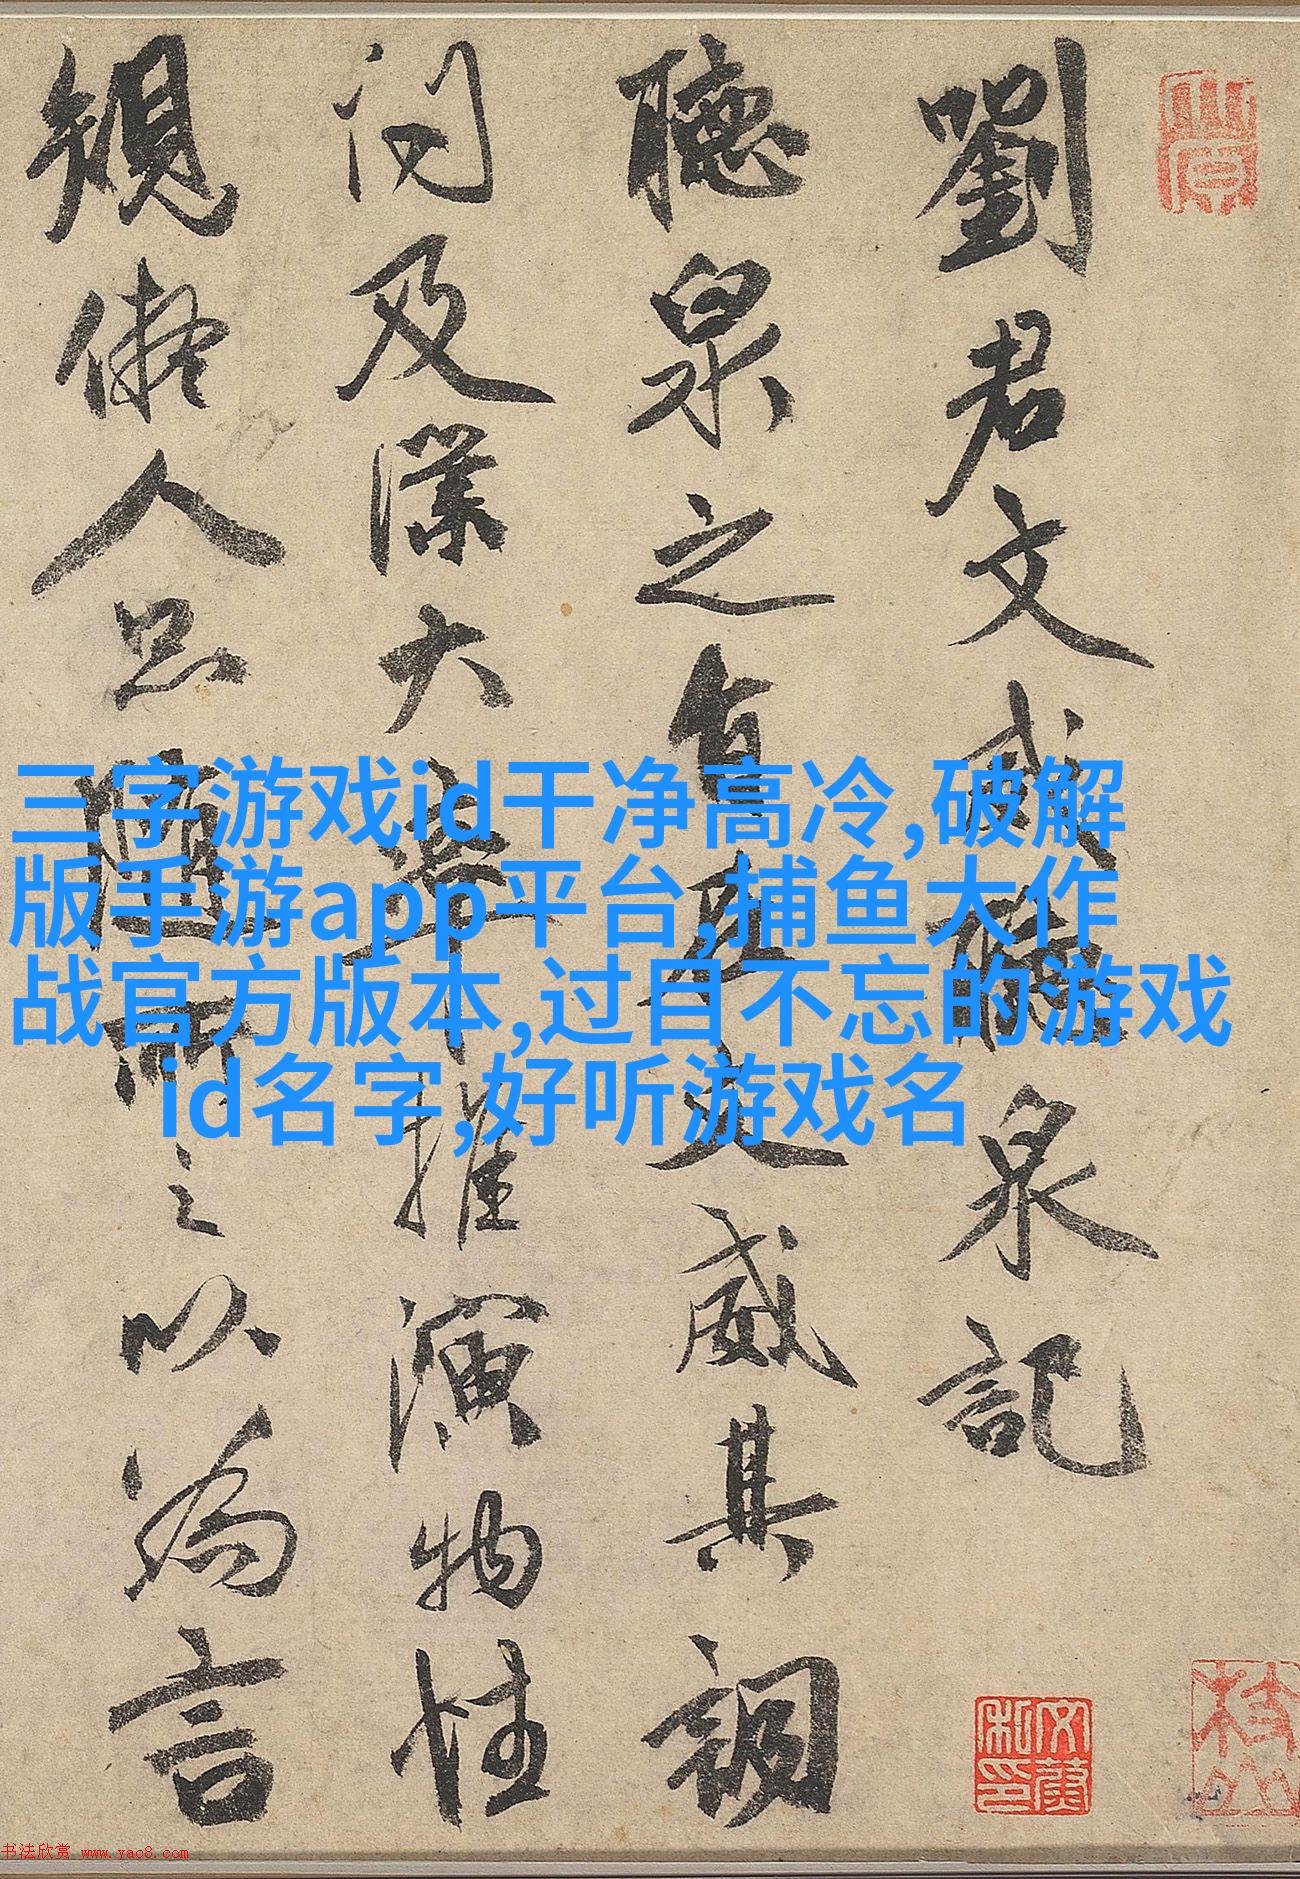 劉君文威聽泉記
聽泉之文威其調
及大率推演物性
人品之以為言
三字游戏id干净高冷,破解
版手游app平台,捕鱼大作
战官方版本,过目不忘的游戏
id名字,好听游戏名
书法欣赏 www.yac8.com